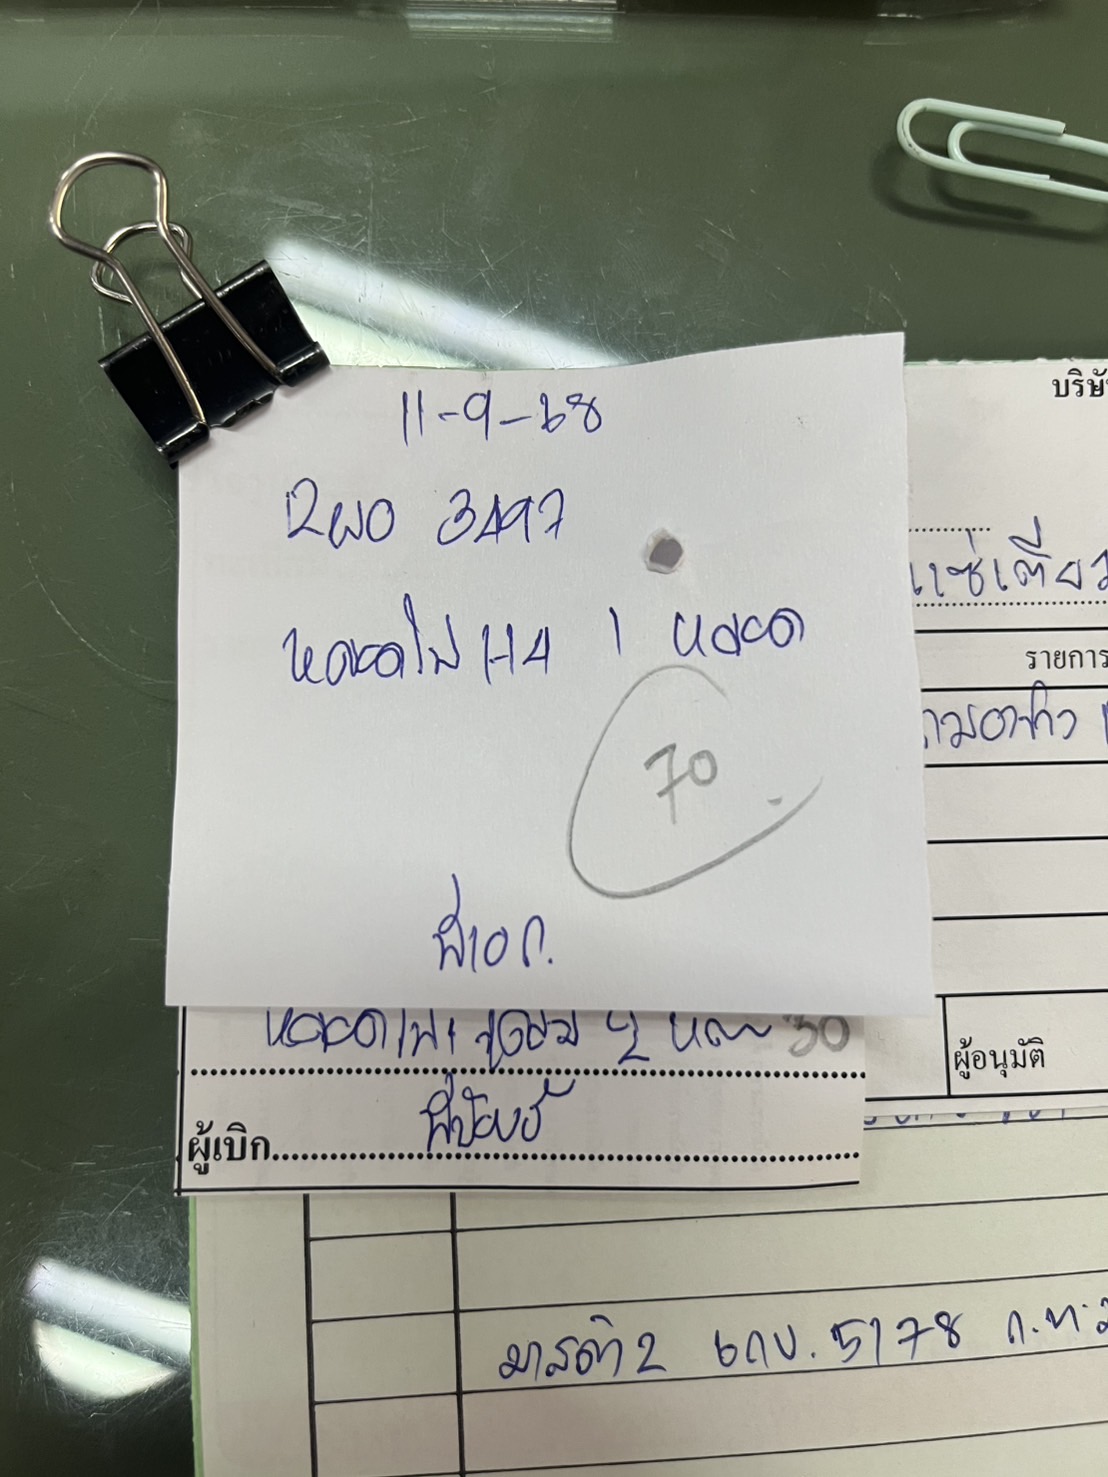 11-9-68
2ฒอ 3497
หลอดไฟ H4 1 หลอด
70
พี่เอก.
หลอดไฟ 2 หลอด 30
ผู้เบิก
บริษั
แซ่เตียว
รายการ
ผู้อนุมัติ
มาสด้า2 6กข. 5178 ก.ท.ม